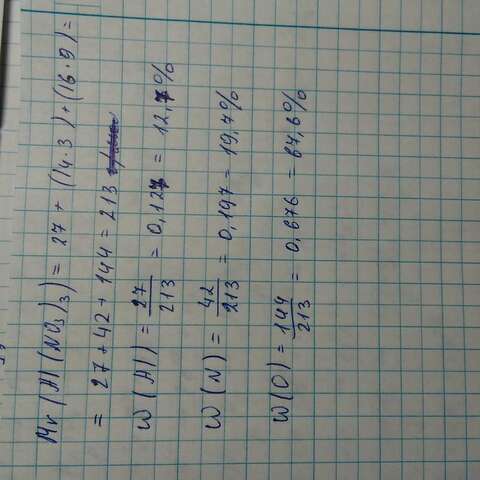 Mr (Al(NO₃)₃) = 27 + (14·3) + (16·9) =
= 27 + 42 + 144 = 213
W(Al) = 27/213 = 0,127 = 12,7%
W(N) = 42/213 = 0,197 = 19,7%
W(O) = 144/213 = 0,676 = 67,6%